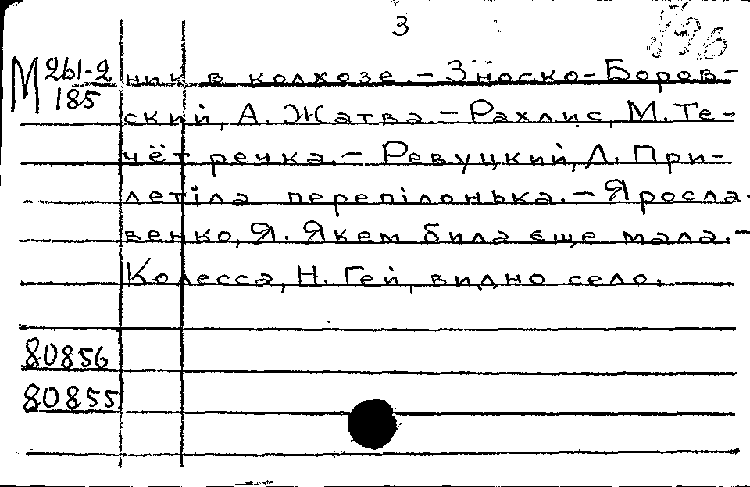 3
896
М 261-2
185
ник в колхозе. – Зноско-Боров-
ский, А. Жатва. – Рахлис, М. Те-
чёт речка. – Ревуцкий, Л. При-
летiла перепiлонька. – Яросла-
венко, Я. Якем била єще мала. –
Колесса, Н. Гей, видно село.
80856
80855